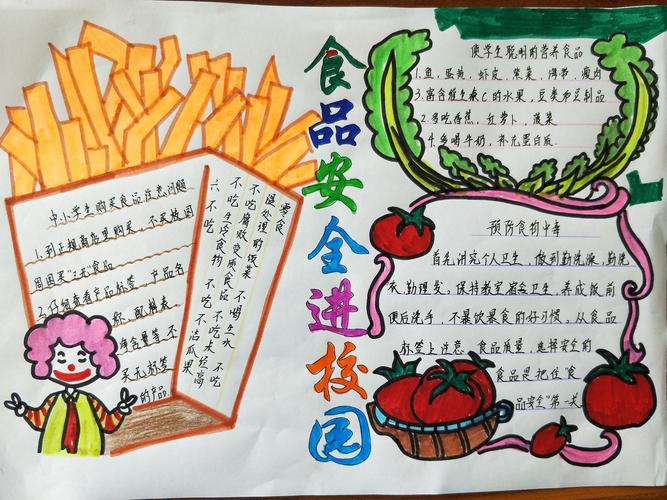 食品安全进校园
中小学生购买食品注意问题
1.到正规商店里购买,不买校园
周围买“三无”食品
2.仔细查看产品标签 产品名
称、配料表、
净含量等 不
买无标签
的产品
六、不吃生冷食物 不吃不洁瓜果
不吃腐败变质食品 不吃未经高
温处理的饭菜 不喝生水 不吃
零食
使学生聪明的营养食品
1.鱼,蛋黄,虾皮,紫菜,海带,瘦肉
3.富含维生素C的水果,豆类和豆制品
2.多吃香蕉,红萝卜,菠菜
4.多喝牛奶,补充蛋白质.
预防食物中毒
首先讲究个人卫生,做到勤洗澡,勤洗
衣,勤理发。保持教室宿舍卫生,养成饭前
便后洗手,不暴饮暴食的好习惯。从食品
标签上注意 食品质量,选择安全的
食品是把住“食
品安全”第一关